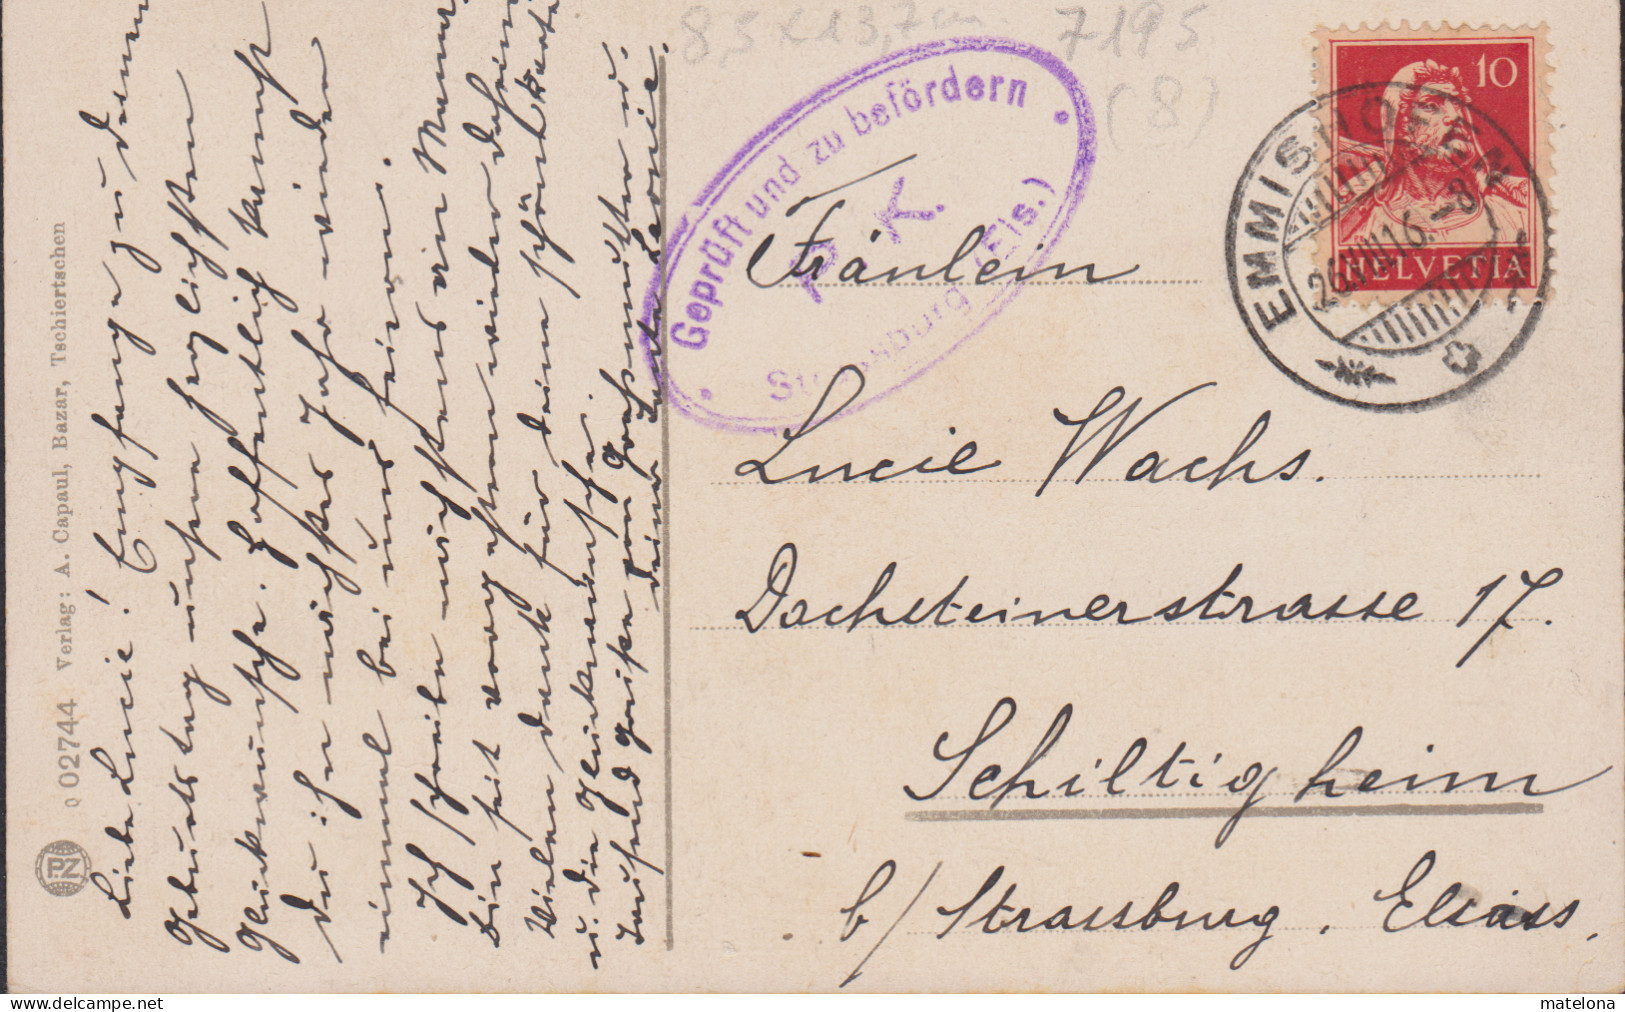 8,5 x 13,7 cm
7195
(8)
Geprüft und zu befördern
P. K.
Strassburg (Els.)
10
HELVETIA
EMMISHOFEN
26.VIII.16.-8
Fräulein
Lucie Wachs.
Dachsteinerstrasse 17.
Schiltigheim
b/ Strassburg. Elsass,
Liebe Lucie! Empfange zu deinem
Geburtstag unsere herzlichsten
Glückwünsche. Hoffentlich kannst
du ihn nächstes Jahr wieder
einmal bei uns feiern.
Ich schreibe nächstens
Bin seit vorgestern wieder daheim
Vielen Dank für deine schöne Karte
u. die Glückwünsche.
Tausend Grüsse von Grossmutter u.
deine Tante Leonie.
02744 Verlag: A. Capaul, Bazar, Tschiertschen
P.Z
delcampe.net
matelona